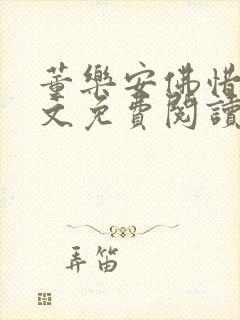 董樂安佛惜
文免費閱讀
弄笛